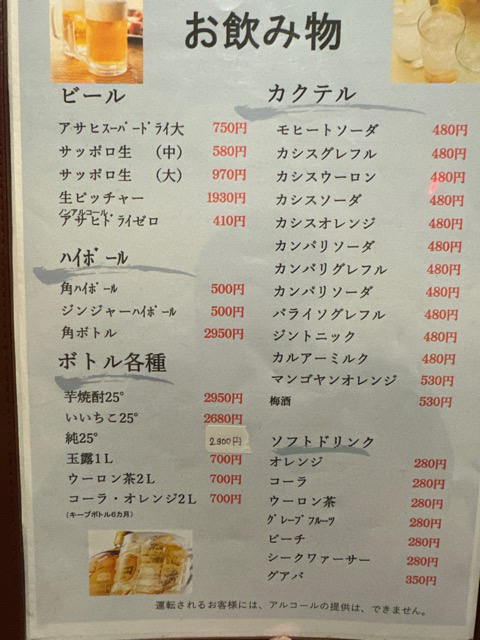 お飲み物
ビール
アサヒスーパードライ大 750円
サッポロ生 (中) 580円
サッポロ生 (大) 970円
生ピッチャー 1930円
ノンアルコール
アサヒドライゼロ 410円
ハイボール
角ハイボール 500円
ジンジャーハイボール 500円
角ボトル 2950円
ボトル各種
芋焼酎25° 2950円
いいちこ25° 2680円
純25° 2.900円
玉露1L 700円
ウーロン茶2L 700円
コーラ・オレンジ2L 700円
(キープボトル6カ月)
カクテル
モヒートソーダ 480円
カシスグレフル 480円
カシスウーロン 480円
カシスソーダ 480円
カシスオレンジ 480円
カンパリソーダ 480円
カンパリグレフル 480円
カンパリソーダ 480円
パライソグレフル 480円
ジントニック 480円
カルアーミルク 480円
マンゴヤンオレンジ 530円
梅酒 530円
ソフトドリンク
オレンジ 280円
コーラ 280円
ウーロン茶 280円
グレープフルーツ 280円
ピーチ 280円
シークワァーサー 280円
グアバ 350円
運転されるお客様には、アルコールの提供は、できません。